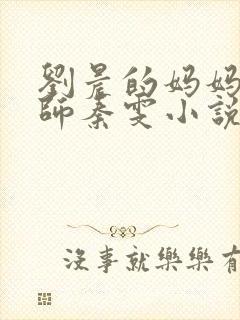 劉晨的妈妈
師秦雯小說
沒事就樂樂有